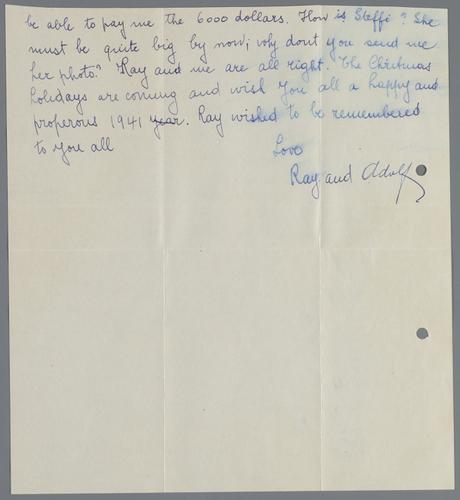 be able to pay me the 6000 dollars. How is Steffi? She
must be quite big by now; why dont you send me
her photo? Ray and me are all right. The Christmas
holidays are coming and wish you all a happy and
properous 1941 year. Ray wished to be remembered
to you all
Love
Ray and Adolf